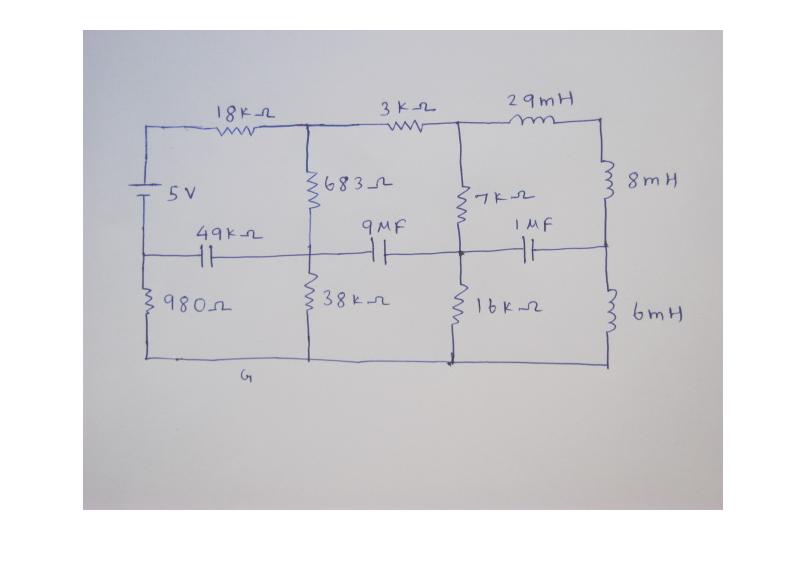 18K Ω
3 K Ω
29mH
5 V
683 Ω
7K Ω
8 mH
49K Ω
9 MF
1 MF
980 Ω
38 K Ω
16 K Ω
6 mH
G